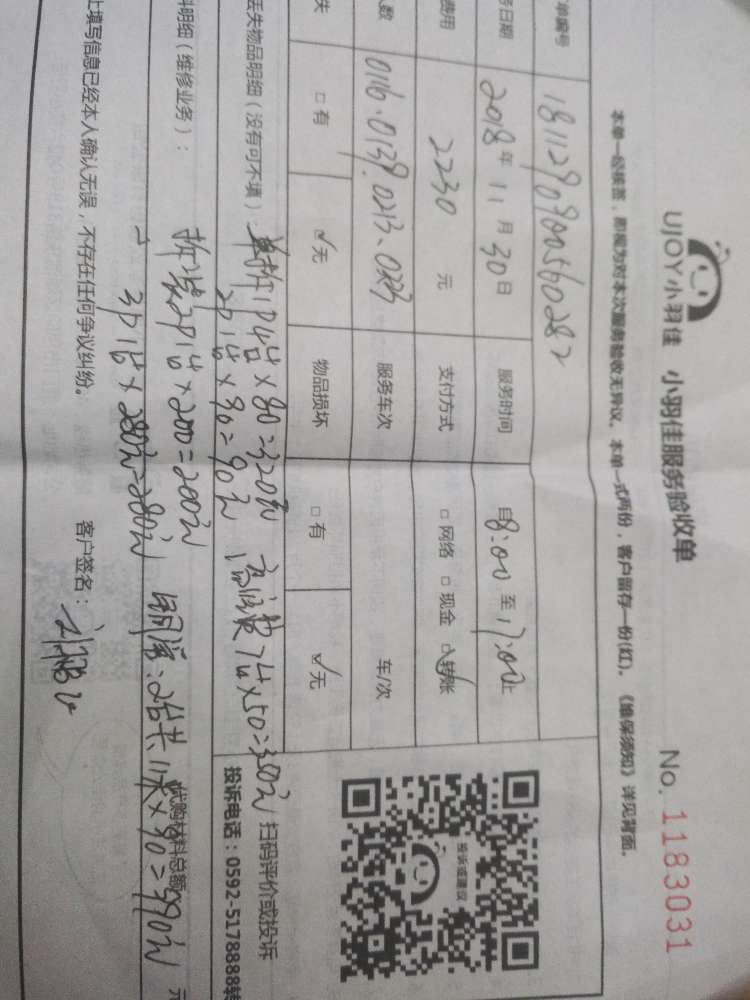 UJOY小羽佳 小羽佳服务验收单 No. 1183031
本单一经接签，即视为对本次服务验收无异议。本单一式两份，客户留存一份(红)。《维保须知》详见背面。
单编号 1811290900560282
务日期 2018年11月30日 服务时间 自8:00至17:00止
费用 2230 元 支付方式 □网络 □现金 ☑转账
人数 0116.0139.0213、0223 服务车次 车/次
失 □有 ☑无 物品损坏 □有 ☑无
扫码评价或投诉
投诉电话：0592-5178888转
投诉或建议
丢失物品明细（没有可不填）：单拆1P4台×80=320元 高空费7台×50=350元
2P1台×90=90元
料明细（维修业务）：拆装2P1台×200=200元 代购材料总额 元
3P1台×280元=280元 铜管：2台共11米×90=990元
上填写信息已经本人确认无误，不存在任何争议纠纷。 客户签名：